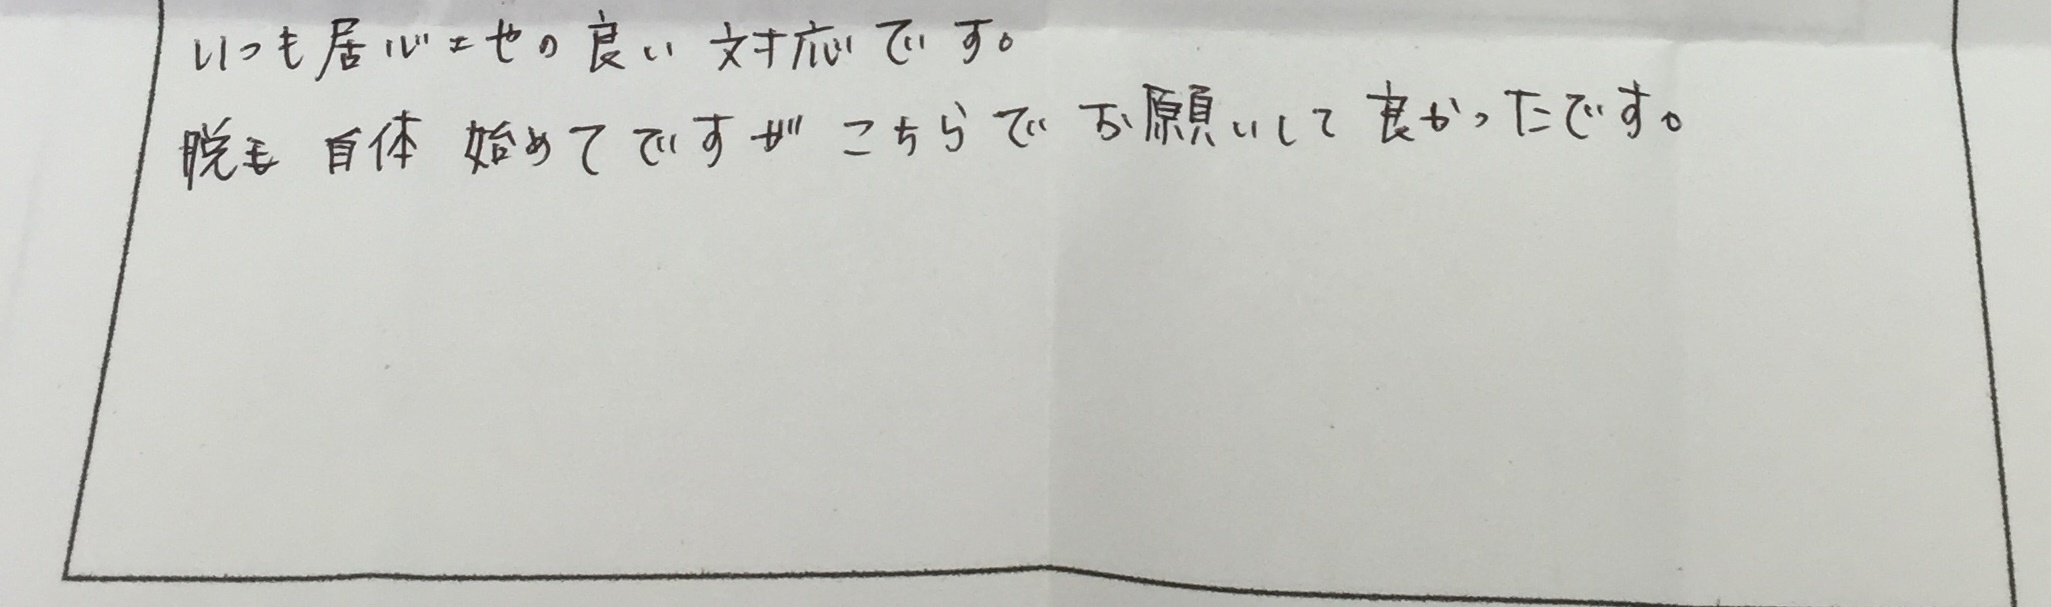 いつも居心エセの良い対応です。
脱毛自体始めてですがこちらでお願いして良かったです。